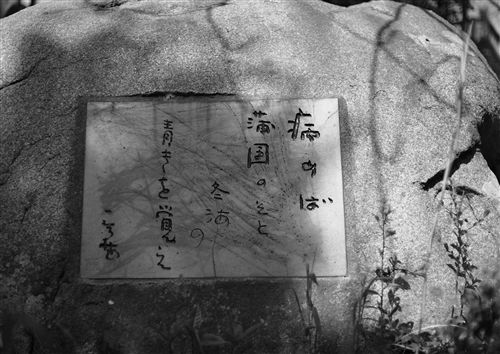 病めば
蒲団のそと
冬海の
青きを覚え